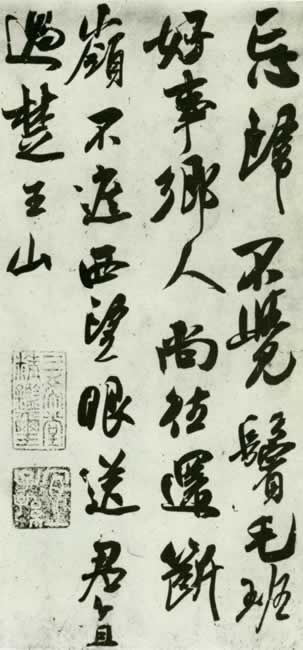 忘歸不覺鬢毛班
好事鄉人尚往還斷
嶺不遮西望眼送君直
過楚王山